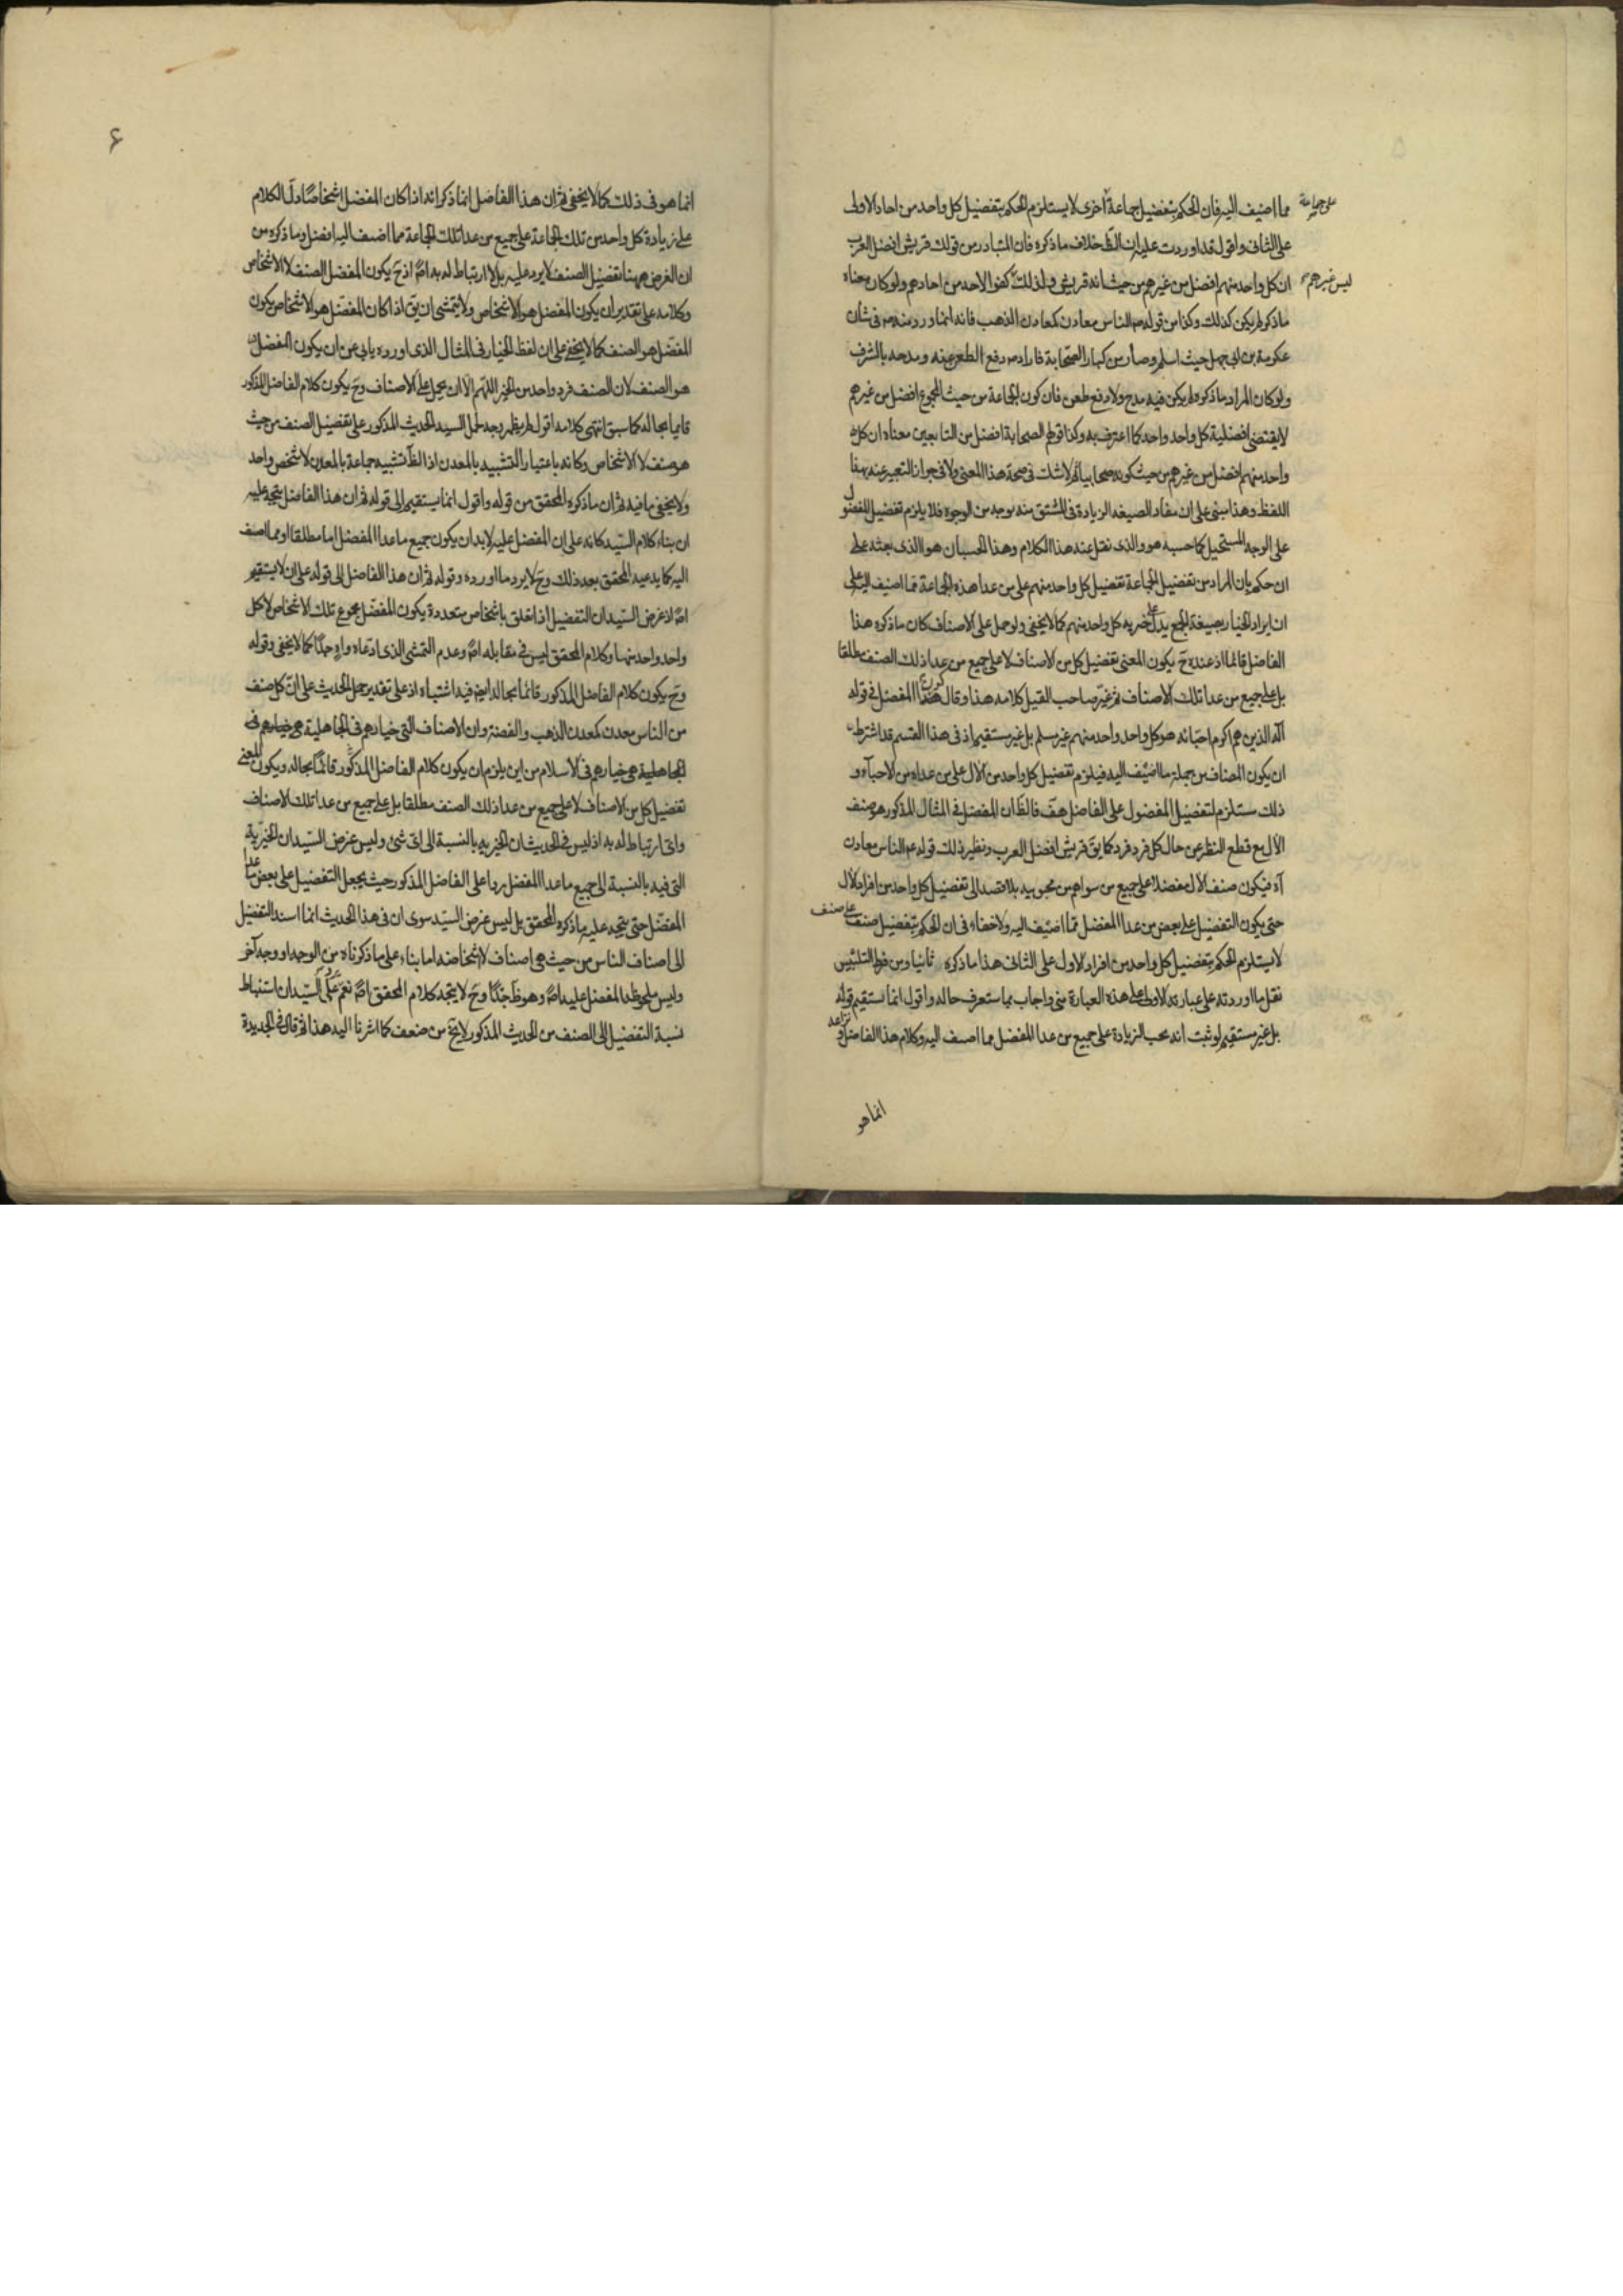 مما اضيف اليه فان الحكم بتفضيل جماعة اخرى لا يستلزم الحكم بتفضيل كل واحد من احاد الاولى
على جماعة
على الثانى واقول قد اوردت عليه ان الظ خلاف ما ذكره فان المتبادر من قولك قريش افضل العرب
ان كل واحد منهم افضل من غيرهم من حيث انه قريشى ولذلك كفوا لاحد من احادهم ولو كان معناه
ليس غيرهم
ما ذكر لم يكن كذلك وكذا من قوله الناس معادن كمعادن الذهب فانه انما ورد منه فى شان
عكرمة بن ابى جهل حيث اسلم وصار من كبار الصحابة فاراد دفع الطعن عنه ومدحه بالشرف
ولو كان المراد ما ذكره لم يكن فيه مدح ولا دفع طعن فان كون الجماعة من حيث المجموع افضل من غيرهم
لا يقتضى افضلية كل واحد واحد كما اعترف به وكذا قولهم الصحابة افضل من التابعين معناه ان كل
واحد منهم افضل من غيرهم من حيث كونه صحابيا ولا شك فى صحة هذا المعنى ولا فى جواز التعبير عنه بهذا
اللفظ وهذا مبنى على ان مفاد الصيغه الزيادة فى المشتق منه بوجه من الوجوه فلا يلزم تفضيل المفضول
على الوجه المستحيل كما حسبه هو والذى نقل عنه هذا الكلام وهذا الحسبان هو الذى بعثه على
ان حكم بان المراد من تفضيل الجماعة تفضيل كل واحد منهم على من عدا هذه الجماعة مما اضيف اليه على
ان ايراد الخيار بصيغة الجمع يدل على خيرية كل واحد منهم كما لا يخفى ولو حمل على الاصناف كان ما ذكره هذا
الفاضل قائما اذ عنده ح يكون المعنى تفضيل كل من الاصناف لا على جميع من عدا ذلك الصنف مطلقا
بل على جميع من عدا تلك الاصناف ثم غير صاحب القيل كلامه هذا وقال كون المفضل فى قوله
آله الذين هم اكرم احبائه هو كل واحد واحد منهم غير مسلم بل غير مستقيم اذ فى هذا القسم قد اشترط
ان يكون المضاف من جملة ما اضيف اليه فيلزم تفضيل كل واحد من الآل على من عداه من الاحباء و
ذلك مستلزم لتفضيل المفضول على الفاضل هف فالظ ان المفضل فى المثال المذكور هو صنف
الآل مع قطع النظر عن حال كل فرد فرد كما يق قريش افضل العرب ونظير ذلك قوله عم الناس معادن
آه فيكون صنف الآل مفضلا على جميع من سواهم من محبوبيه بلا قصد الى تفضيل كل واحد من افراد الآل
حتى يكون التفضيل على بعض من عدا المفضل مما اضيف اليه ولا خفاء فى ان الحكم بتفضيل صنف
على صنف
لا يستلزم الحكم بتفضيل كل واحد من افراد الاول على الثانى هذا ما ذكره ثانيا ومن فرط التلبيس
نقل ما اوردته على عبارته الاولى على هذه العبارة منى واجاب بما ستعرف حاله واقول انما يستقيم قوله
بل غير مستقيم لو ثبت انه يجب الزيادة على جميع من عدا المفضل مما اضيف اليه وكلام هذا الفاضل
انما هو
٦
انما هو فى ذلك كما لا يخفى ثم ان هذا الفاضل انما ذكر انه اذا كان المفضل اشخاصا دل الكلام
على زيادة كل واحد من تلك الجماعة على جميع من عدا تلك الجماعة مما اضيف اليه افضل وما ذكره من
ان الغرض ههنا تفضيل الصنف لا يرد عليه بل لا ارتباط له به اصلا اذ ح يكون المفضل الصنف لا الاشخاص
وكلامه على تقدير ان يكون المفضل هو الاشخاص ولا يتمشى ان يق اذا كان المفضل هو الاشخاص يكون
المفضل هو الصنف كما لا يخفى على ان لفظ الخيار فى المثال الذى اورده يابى عن ان يكون المفضل
هو الصنف لان الصنف فرد واحد من الخير اللهم الا ان يحمل على الاصناف وح يكون كلام الفاضل المذكور
قائما بحاله كما سبق انتهى كلامه اقول لم يظهر وجه حمل السيد الحديث المذكور على تفضيل الصنف من حيث
هو صنف لا الاشخاص وكانه باعتبار التشبيه بالمعدن اذ الظ تشبيه جماعة بالمعدن لا شخص واحد
ولا يخفى ما فيه ثم ان ما ذكره المحقق من قوله واقول انما يستقيم الى قوله ثم ان هذا الفاضل يتجه عليه
ان بناء كلام السيد كانه على ان المفضل عليه لا بد ان يكون جميع ما عدا المفضل اما مطلقا او مما اضيف
اليه كما يدعيه المحقق بعد ذلك وح لا يرد ما اورده وقوله ثم ان هذا الفاضل الى قوله على ان لا يستقيم
اصلا اذ غرض السيد ان التفضيل اذا تعلق باشخاص متعددة يكون المفضل مجموع تلك الاشخاص لا كل
واحد واحد منها وكلام المحقق ليس فى مقابله اصلا وعدم التمشى الذى ادعاه واه جدا كما لا يخفى وقوله
وح يكون كلام الفاضل المذكور قائما بحاله ايضا فيه اشتباه اذ على تقدير حمل الحديث على ان كل صنف
من الناس معدن كمعدن الذهب والفضة وان الاصناف التى خيارهم فى الجاهلية هى خيارهم فى
الجاهلية هى خيارهم فى الاسلام من اين يلزم ان يكون كلام الفاضل المذكور قائما بحاله ويكون المعنى
تفضيل كل من الاصناف لا على جميع من عدا ذلك الصنف مطلقا بل على جميع من عدا تلك الاصناف
واى ارتباط له به اذ ليس فى الحديث ان الخيرية بالنسبة الى اى شئ وليس غرض السيد ان الخيرية
التى فيه بالنسبة الى جميع ما عدا المفضل ردا على الفاضل المذكور حيث يجعل التفضيل على بعض ما عدا
المفضل حتى يتجه عليه ما ذكره المحقق بل ليس غرض السيد سوى ان فى هذا الحديث انما اسند التفضيل
الى اصناف الناس من حيث هى اصناف لا اشخاصه اما بناء على ما ذكرناه من الوجه او وجه آخر
وليس ملحوظه المفضل عليه اصلا وهو ظ جدا وح لا يتجه كلام المحقق اصلا نعم على السيد ان استنباط
نسبة التفضيل الى الصنف من الحديث المذكور لا يخ من ضعف كما اشرنا اليه هذا ثم قال فى الجديدة